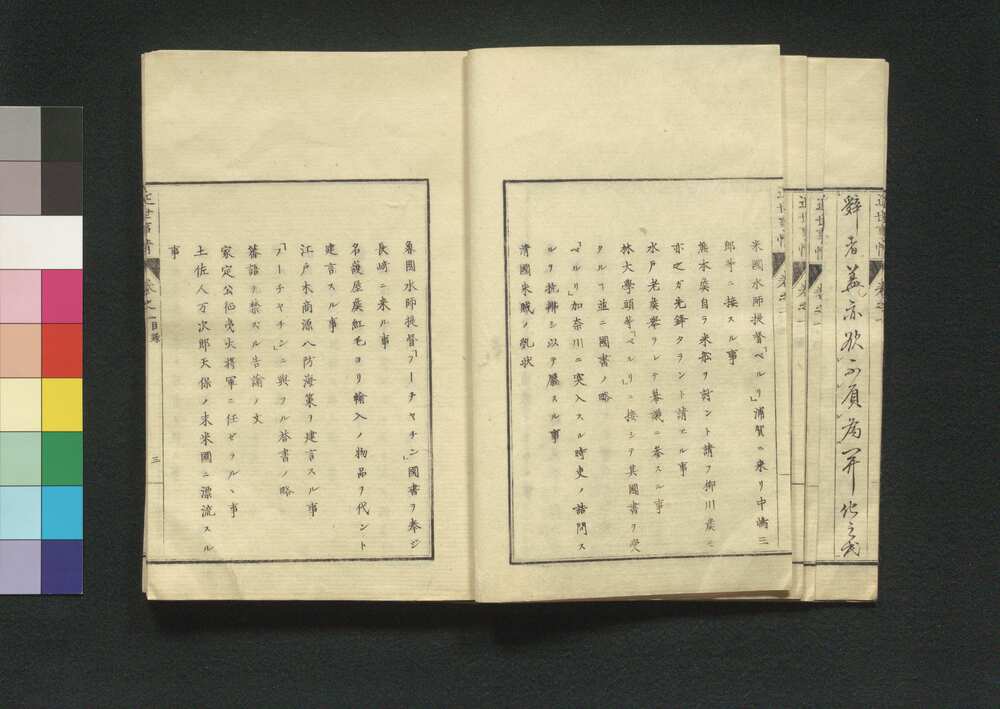 辭者蓋亦欲不負為開化之民
近世事情
近世事情
近世事情
米國水師提督「ペルリ」浦賀ニ来リ中嶋三
郎等ニ接スル事
熊本矦自ラ米船ヲ討ント請フ柳川矦モ
亦之ガ先鋒タラント請フ事
水戸老矦擧ラレテ幕議ニ参スル事
林大學頭等「ペルリ」ニ接シテ其國書ヲ受
タル事並ニ國書ノ略
「ペルリ」加奈川ニ突入スル時吏ノ詰問ス
ルヲ抗辨シ以テ屬スル事
清國米賊ノ乱状
魯國水師提督「プーチャチン」國書ヲ奉ジ
長崎ニ来ル事
名護屋矦紅毛ヨリ輸入ノ物品ヲ代ント
建言スル事
江戸木商源八防海策ヲ建言スル事
「プーチヤチン」ニ與フル答書ノ略
蕃語ヲ禁ズル告諭ノ文
家定公征夷大將軍ニ任ゼラル、事
土佐人万次郎天保ノ末米國ニ漂流スル
事
近世事情 巻之一 目録 三